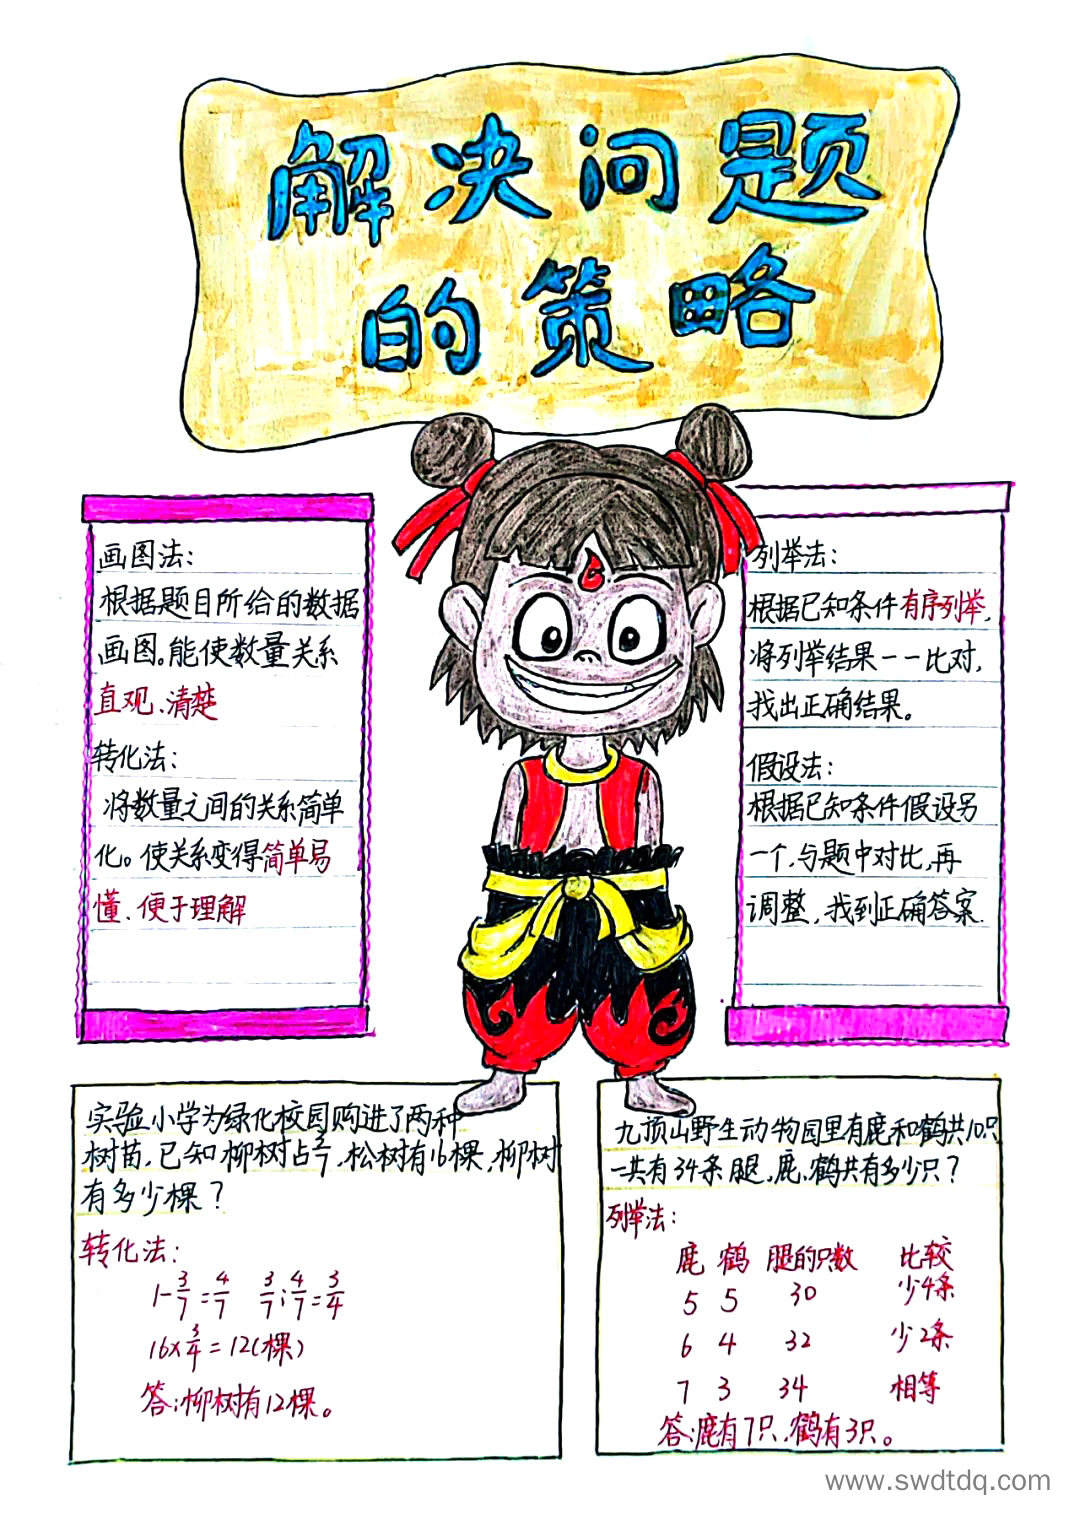 解决问题
的策略
画图法：
根据题目所给的数据
画图。能使数量关系
直观、清楚
转化法：
将数量之间的关系简单
化。使关系变得简单易
懂、便于理解
列举法：
根据已知条件有序列举，
将列举结果一一比对，
找出正确结果。
假设法：
根据已知条件假设另
一个，与题中对比，再
调整，找到正确答案．
实验小学为绿化校园购进了两种
树苗，已知柳树占3/7，松树有16棵，柳树
有多少棵？
转化法：
1-3/7=4/7 3/7:4/7=3/4
16×3/4=12(棵)
答:柳树有12棵。
九顶山野生动物园里有鹿和鹤共10只
一共有34条腿，鹿、鹤共有多少只？
列举法：
鹿 鹤 腿的只数 比较
5 5 30 少4条
6 4 32 少2条
7 3 34 相等
答:鹿有7只，鹤有3只。
www.swdtdq.com